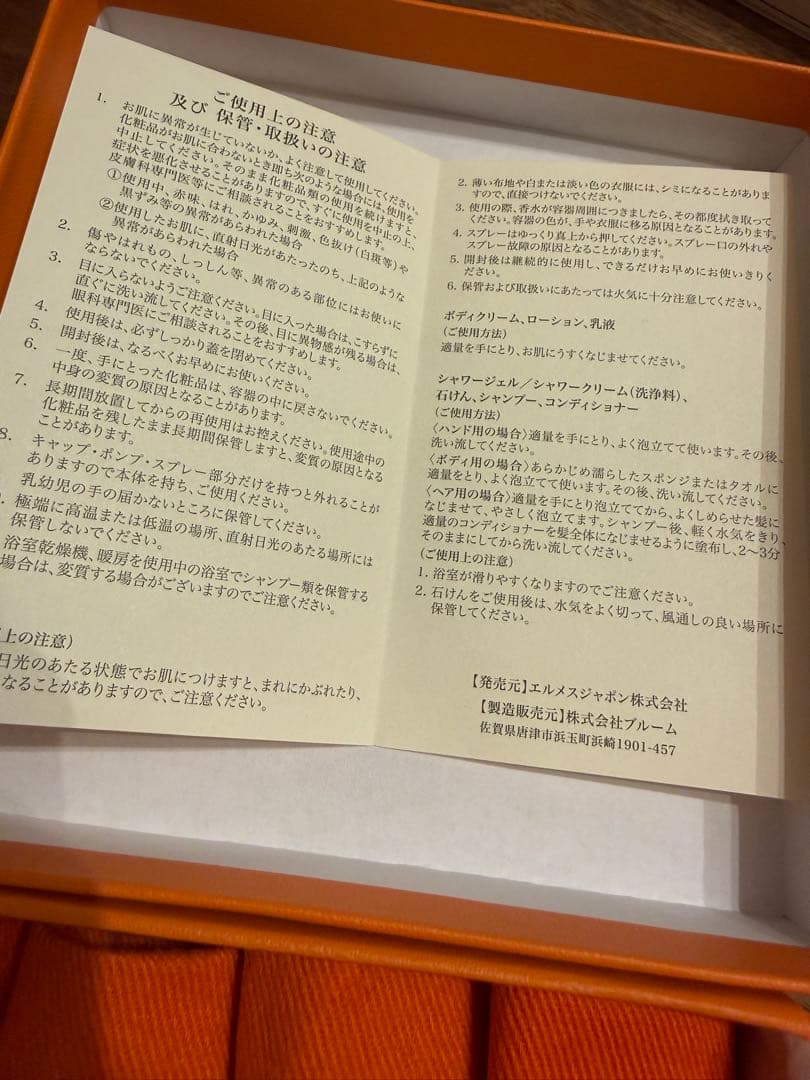 ご使用上の注意
及び 保管・取扱いの注意
1. お肌に異常が生じていないか、よく注意して使用してください。
化粧品がお肌に合わないとき即ち次のような場合には、使用を
中止してください。そのまま化粧品類の使用を続けますと、
症状を悪化させることがありますので、すぐに使用を中止の上、
皮膚科専門医等にご相談されることをおすすめします。
①使用中、赤味、はれ、かゆみ、刺激、色抜け(白斑等)や
黒ずみ等の異常があらわれた場合
②使用したお肌に、直射日光があたったのち、上記のような
異常があらわれた場合
2. 傷やはれもの、しっしん等、異常のある部位にはお使いに
ならないでください。
3. 目に入らないようご注意ください。目に入った場合は、こすらずに
直ぐに洗い流してください。その後、目に異物感が残る場合は、
眼科専門医にご相談されることをおすすめします。
4. 使用後は、必ずしっかり蓋を閉めてください。
5. 開封後は、なるべくお早めにお使いください。
6. 一度、手にとった化粧品は、容器の中に戻さないでください。
中身の変質の原因となることがあります。
7. 長期間放置してからの再使用はお控えください。使用途中の
化粧品を残したまま長期間保管しますと、変質の原因となる
ことがあります。
8. キャップ・ポンプ・スプレー部分だけを持つと外れることが
ありますので本体を持ち、ご使用ください。
乳幼児の手の届かないところに保管してください。
極端に高温または低温の場所、直射日光のあたる場所には
保管しないでください。
浴室乾燥機、暖房を使用中の浴室でシャンプー類を保管する
場合は、変質する場合がございますのでご注意ください。
上の注意)
日光のあたる状態でお肌につけますと、まれにかぶれたり、
なることがありますので、ご注意ください。
2. 薄い布地や白または淡い色の衣服には、シミになることがありま
すので、直接つけないでください。
3. 使用の際、香水が容器周囲につきましたら、その都度拭き取って
ください。容器の色が、手や衣服に移る原因となることがあります。
4. スプレーはゆっくり真上から押してください。スプレー口の外れや
スプレー故障の原因となることがあります。
5. 開封後は継続的に使用し、できるだけお早めにお使いきりく
ださい。
6. 保管および取扱いにあたっては火気に十分注意してください。
ボディクリーム、ローション、乳液
(ご使用方法)
適量を手にとり、お肌にうすくなじませてください。
シャワージェル/シャワークリーム(洗浄料)、
石けん、シャンプー、コンディショナー
(ご使用方法)
〈ハンド用の場合〉適量を手にとり、よく泡立てて使います。その後、
洗い流してください。
〈ボディ用の場合〉あらかじめ濡らしたスポンジまたはタオルに
適量をとり、よく泡立てて使います。その後、洗い流してください。
〈ヘア用の場合〉適量を手にとり泡立ててから、よくしめらせた髪に
なじませて、やさしく泡立てます。シャンプー後、軽く水気をきり、
適量のコンディショナーを髪全体になじませるように塗布し、2〜3分
そのままにしてから洗い流してください。
(ご使用上の注意)
1. 浴室が滑りやすくなりますのでご注意ください。
2. 石けんをご使用後は、水気をよく切って、風通しの良い場所に
保管してください。
【発売元】エルメスジャポン株式会社
【製造販売元】株式会社ブルーム
佐賀県唐津市浜玉町浜崎1901-457